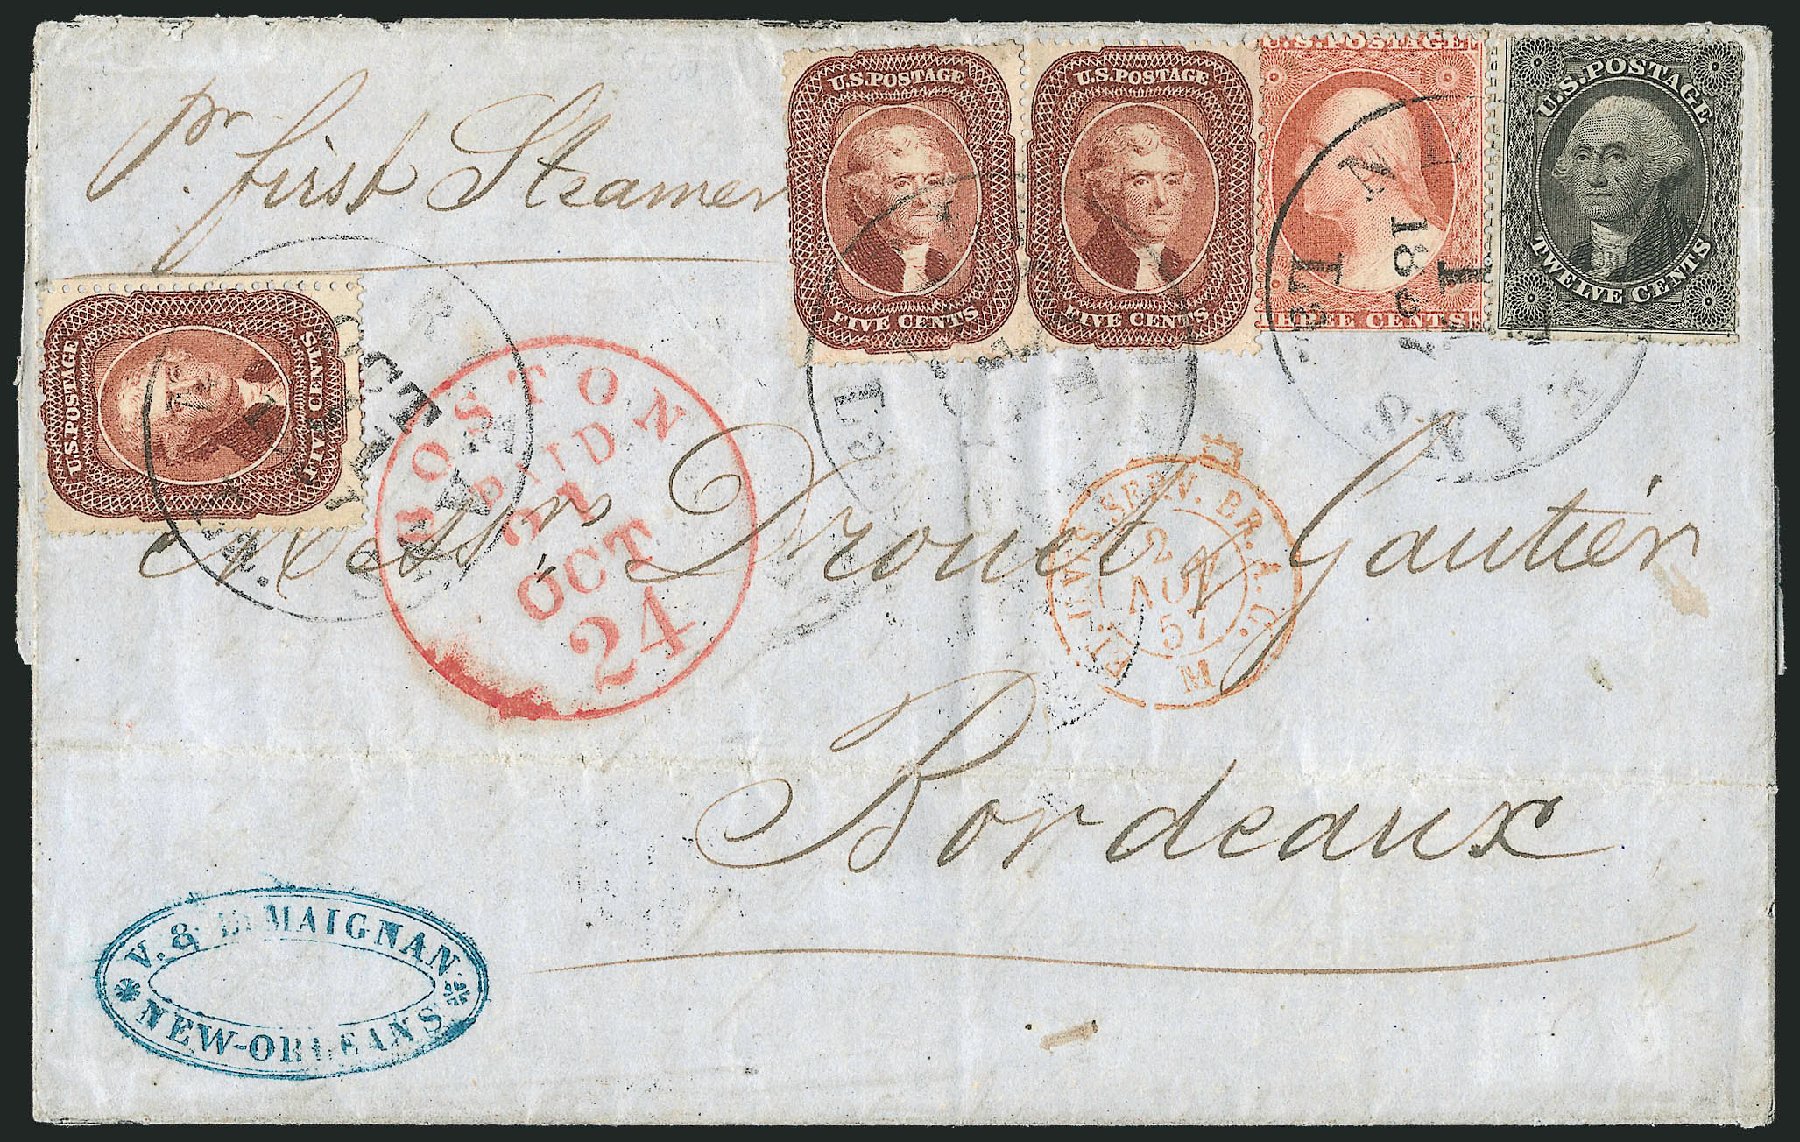 pr. first Steamer
U.S. POSTAGE
FIVE CENTS
U.S. POSTAGE
FIVE CENTS
U.S. POSTAGE
CENTS
U.S. POSTAGE
TWELVE CENTS
U.S. POSTAGE
FIVE CENTS
OCT
BOSTON
PAID
21
OCT
24
ET. UNIS SERV. BR. A. C.
2
57
M
Messrs Drouet & Gautier
Bordeaux
V. & MAIGNAN
NEW-ORLEANS